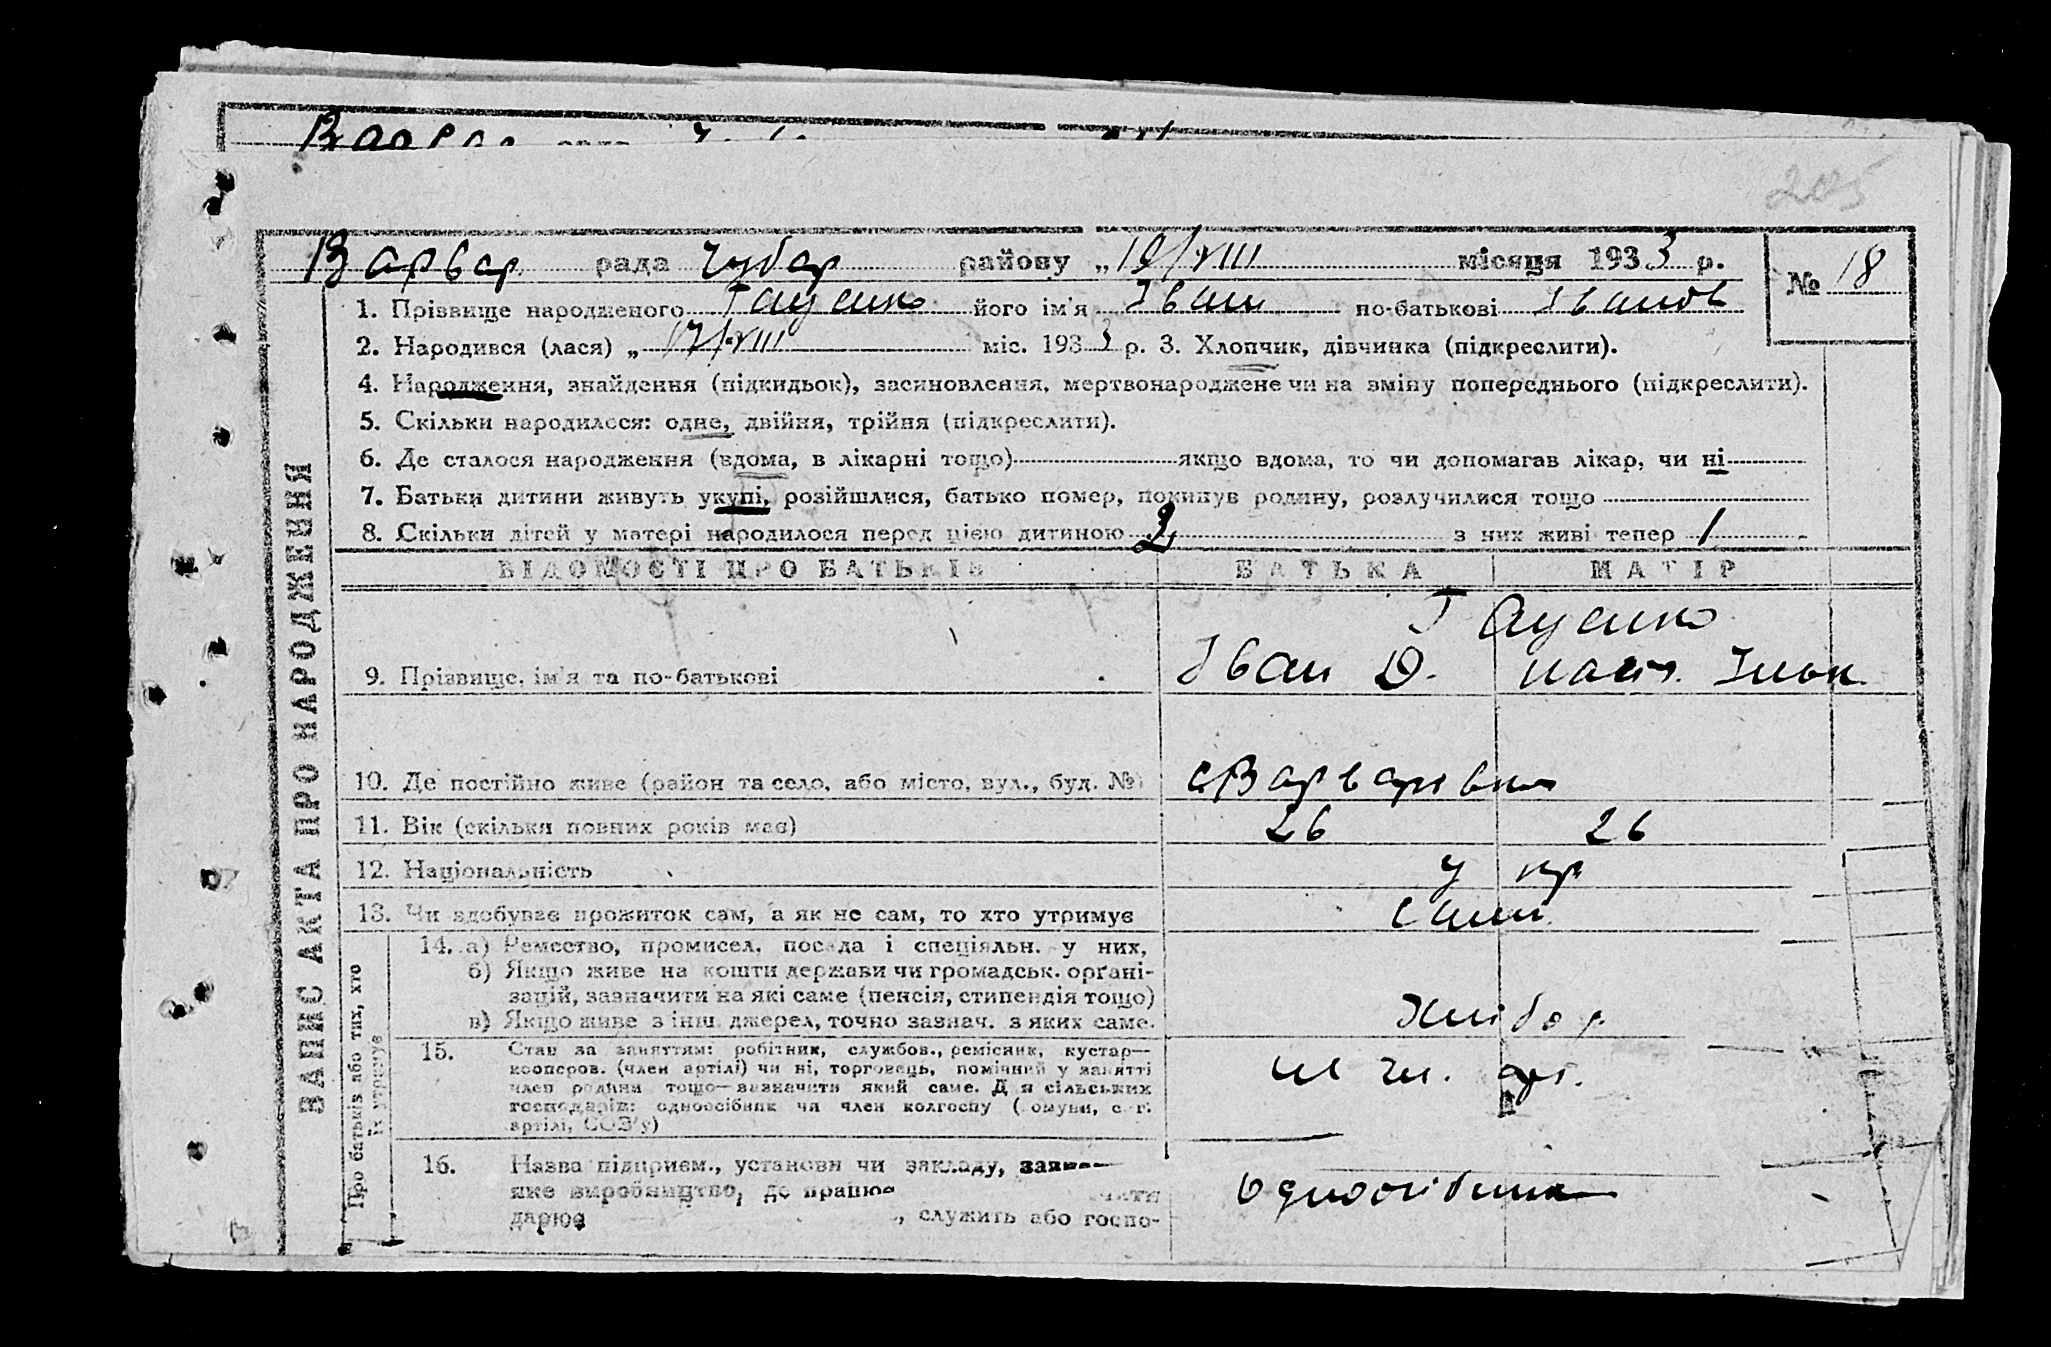 205
Варвар. рада Чубар району „19/VIII місяця 1933 р.
№ 18
1. Прізвище народженого Гаценко його ім'я Іван по-батькові Іванов
2. Народився (лася) „ 17/VIII міс. 1933 р. 3. Хлопчик, дівчинка (підкреслити).
4. Народження, знайдення (підкидьок), засиновлення, мертвонароджене чи на зміну попереднього (підкреслити).
5. Скільки народилося: одне, двійня, трійня (підкреслити).
6. Де сталося народження (вдома, в лікарні тощо) якщо вдома, то чи допомагав лікар, чи ні
7. Батьки дитини живуть укупі, розійшлися, батько помер, покинув родину, розлучилися тощо
8. Скільки дітей у матері народилося перед цією дитиною 2 з них живі тепер 1
ВІДОМОСТІ ПРО БАТЬКІВ БАТЬКА МАТІР
Гаценко
9. Прізвище, ім'я та по-батькові Іван Д.
10. Де постійно живе (район та село, або місто, вул., буд. №) с Варварівка
11. Вік (скільки повних років має) 26 26
12. Національність укр
13. Чи здобуває прожиток сам, а як не сам, то хто утримує сами
14. а) Ремесство, промисел, посада і спеціяльн. у них,
б) Якщо живе на кошти держави чи громадськ. орґані-
зацій, зазначити на які саме (пенсія, стипендія тощо)
в) Якщо живе з інш. джерел, точно зазнач. з яких саме. Хлібор
15. Стан за заняттям: робітник, службов., ремісник, кустар—
кооперов. (член артілі) чи ні, торговець, помічний у занятті
член родини тощо—зазначити який саме. Для сільських
господарів: одноосібник чи член колгоспу (комуни, с.-г.
артілі, СОЗ'у)
16. Назва підприєм., установи чи закладу,
яке виробництво, де працює
дарює , служить або госпо-
Одноосібник
ЗАПИС АКТА ПРО НАРОДЖЕННЯ
Про батьків або тих, хто
їх утримує